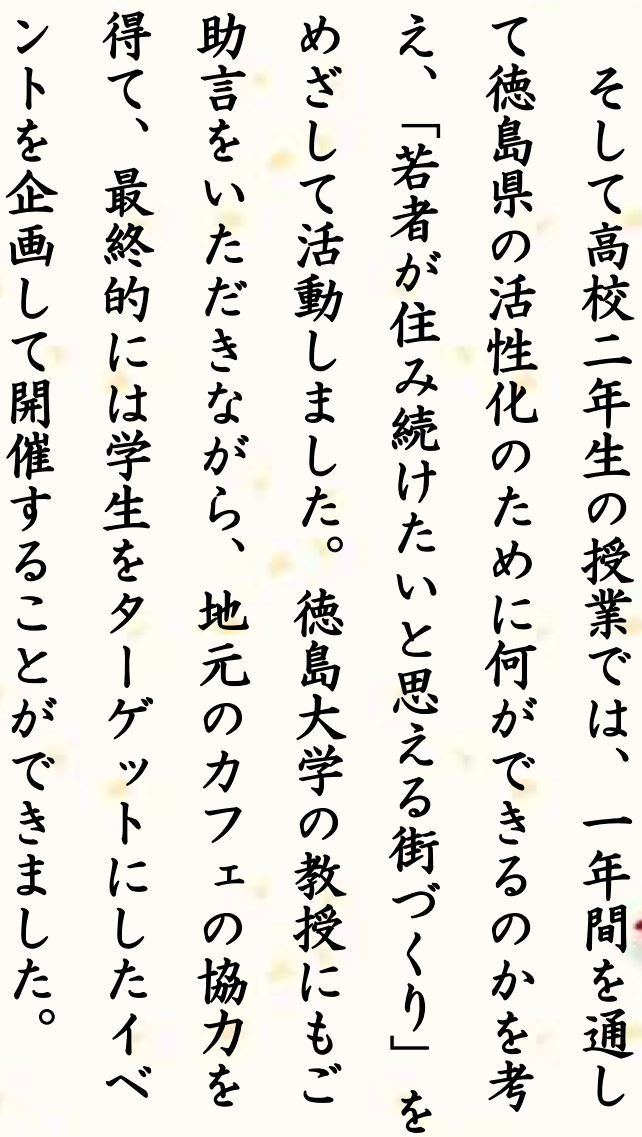 そして高校二年生の授業では、一年間を通し
て徳島県の活性化のために何ができるのかを考
え、「若者が住み続けたいと思える街づくり」を
めざして活動しました。徳島大学の教授にもご
助言をいただきながら、地元のカフェの協力を
得て、最終的には学生をターゲットにしたイベ
ントを企画して開催することができました。